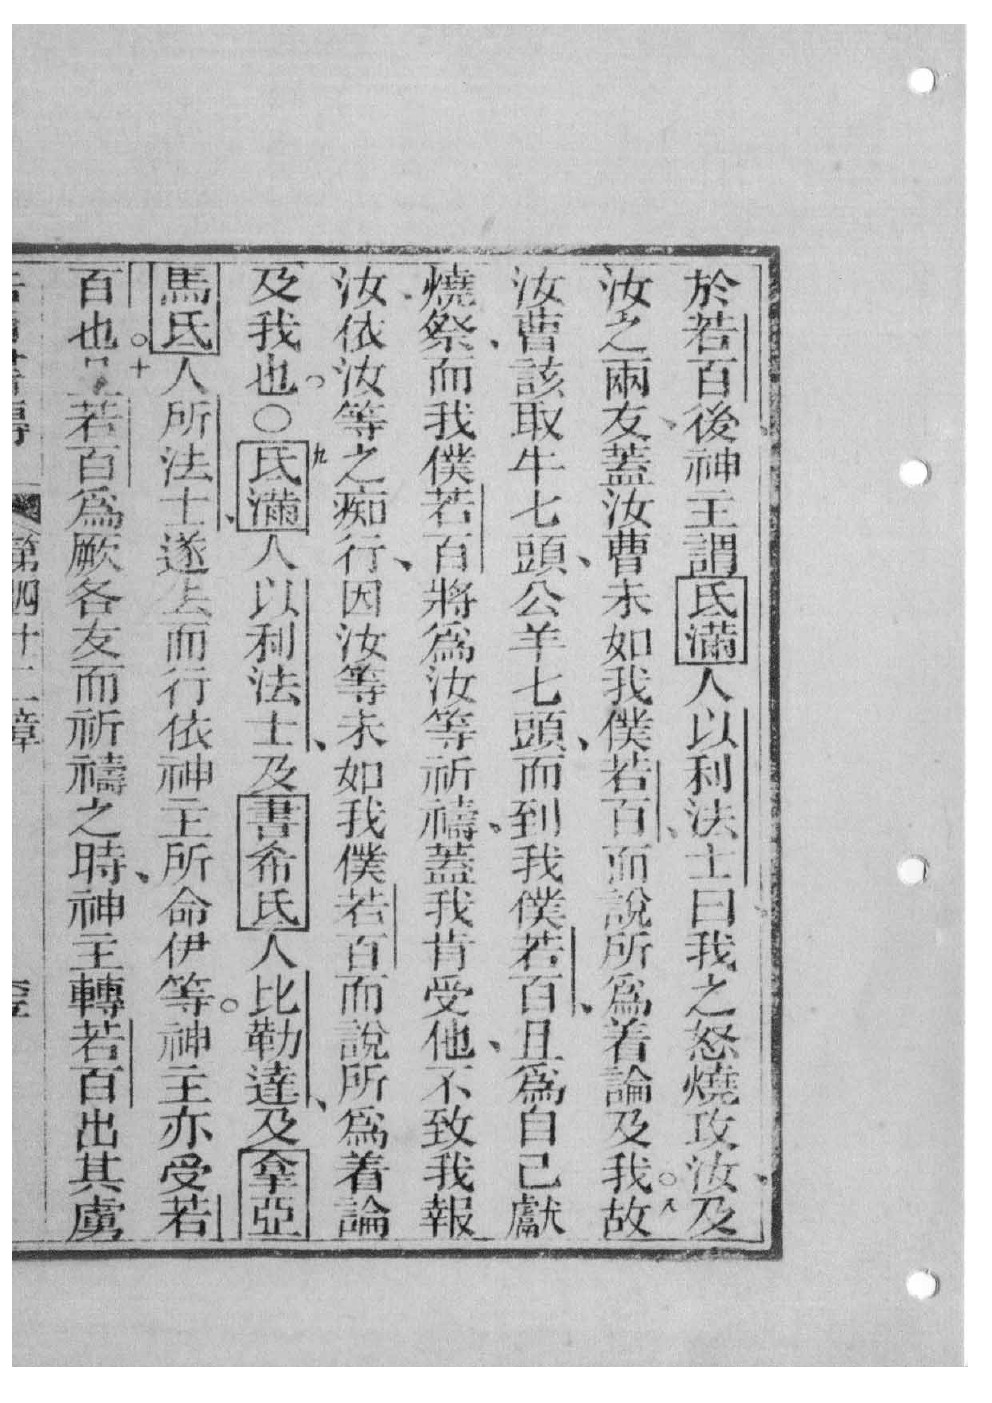 於若百後神主謂氐滿人以利法士曰我之怒燒攻汝及
汝之兩友蓋汝曹未如我僕若百而說所爲着論及我。八故
汝曹該取牛七頭、公羊七頭、而到我僕若百、且爲自己獻
燒祭、而我僕若百將爲汝等祈禱、蓋我肯受他、不致我報
汝依汝等之痴行、因汝等未如我僕若百而說所爲着論
及我也。○九氐滿人以利法士、及書希氏人比勒達、及拿亞
馬氏人所法士、遂去而行依神主所命伊等。神主亦受若
百也。十若百爲厥各友而祈禱之時、神主轉若百出其虜
若百書傳 第四十二章